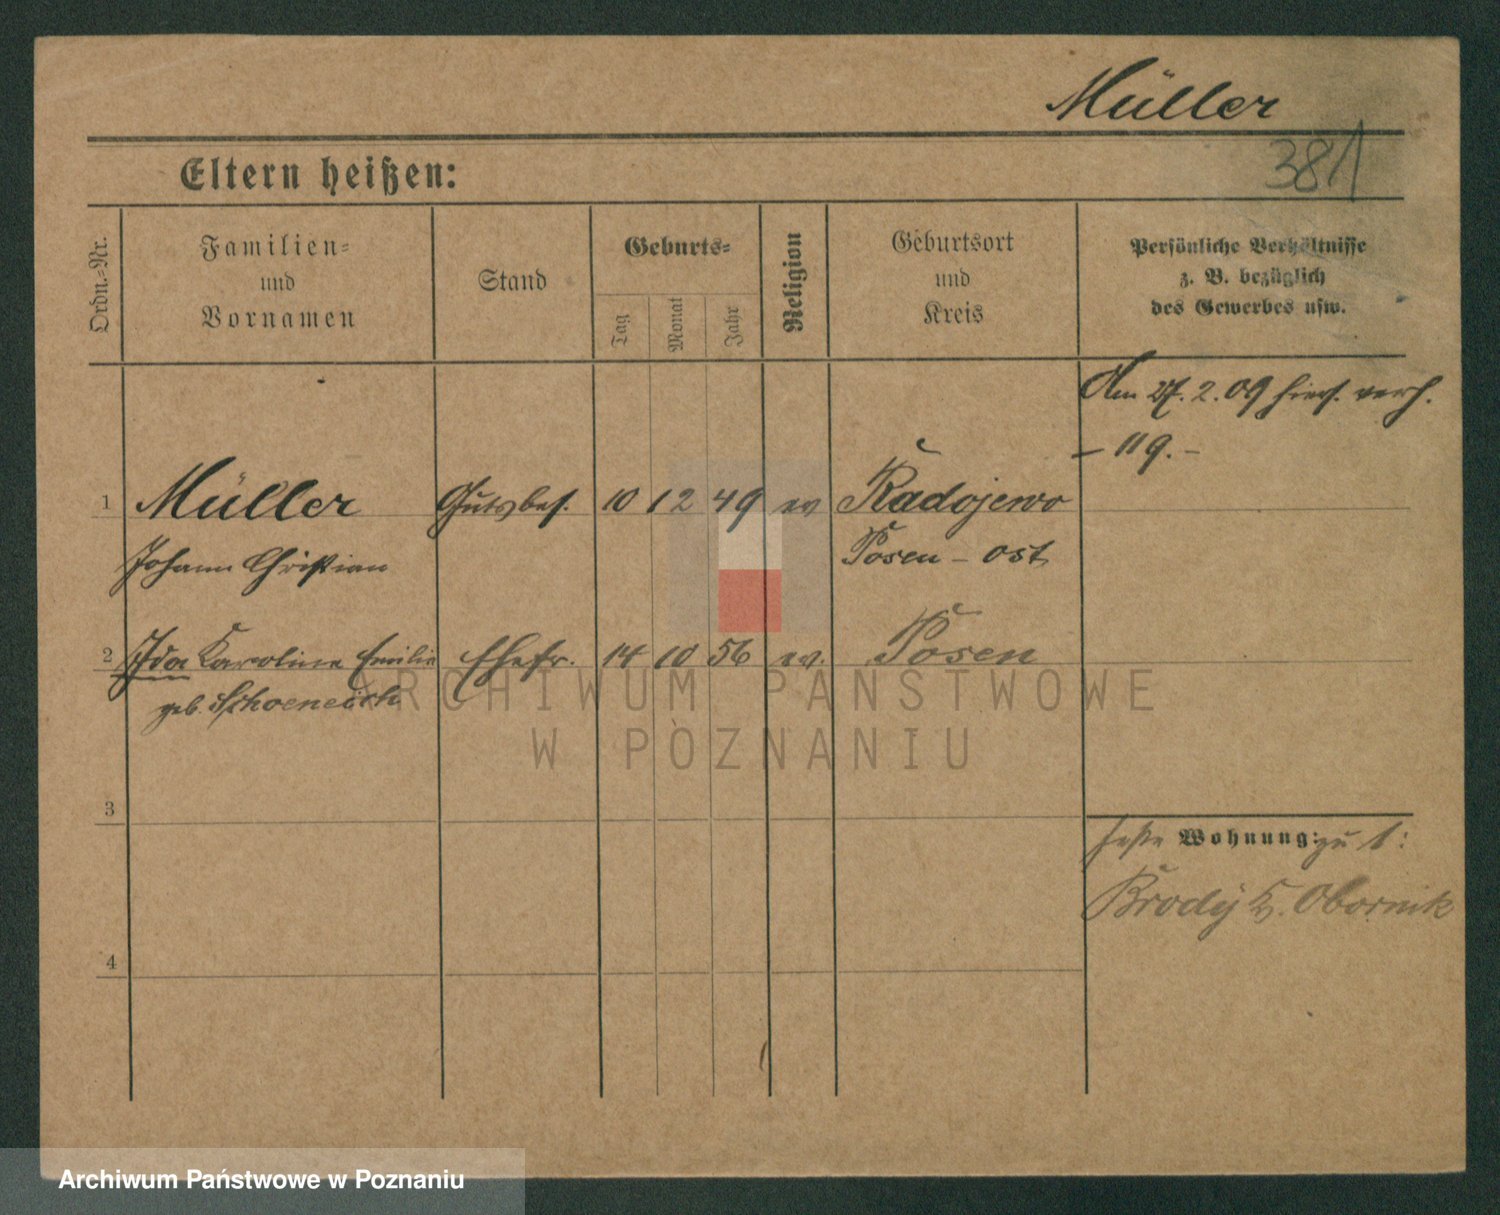 Müller
381
Eltern heißen:
Ordn.-Nr.
Familien-
und
Vornamen
Stand
Geburts-
Tag
Monat
Jahr
Religion
Geburtsort
und
Kreis
Persönliche Verhältnisse
z. B. bezüglich
des Gewerbes usw.
Am 27. 2. 09 hier verh.
– 119. –
1 Müller Gutsbes. 10 12 49 ev Radojewo
Johann Christian Posen - Ost
2 Ida Karoline Emilie Ehefr. 14 10 56 ev. Posen
geb. Schoeneich
ARCHIWUM PAŃSTWOWE
W POZNANIU
3
feste Wohnung: zu 1:
Brody K. Obornik
4
Archiwum Państwowe w Poznaniu